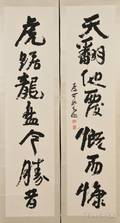 天翻地覆慨而慷
虎踞龍盤今勝昔